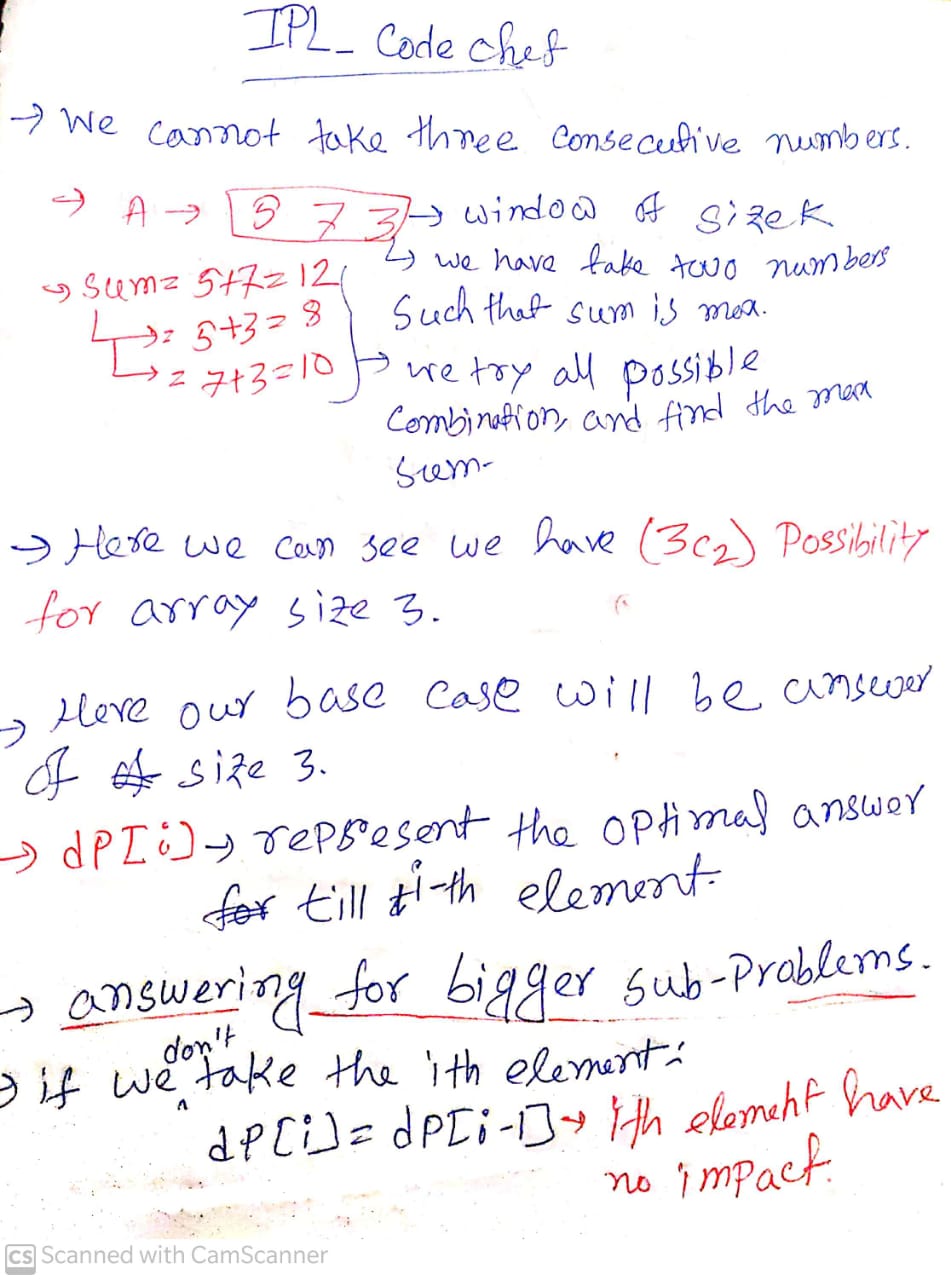 IPL - Code chef
→ We cannot take three consecutive numbers.
→ A → 5 7 3 → window of size K
↳ we have take two numbers
such that sum is max.
→ sum = 5+7 = 12
↳ = 5+3 = 8
↳ = 7+3 = 10
→ we try all possible
combination, and find the max
sum-
→ Here we can see we have (3c2) Possibility
for array size 3.
→ Here our base case will be answer
of of size 3.
→ dP[i] → represent the optimal answer
for till i-th element.
→ answering for bigger sub-Problems.
→ if we don't take the ith element:
dP[i] = dP[i-1] → ith element have
no impact.
CS Scanned with CamScanner